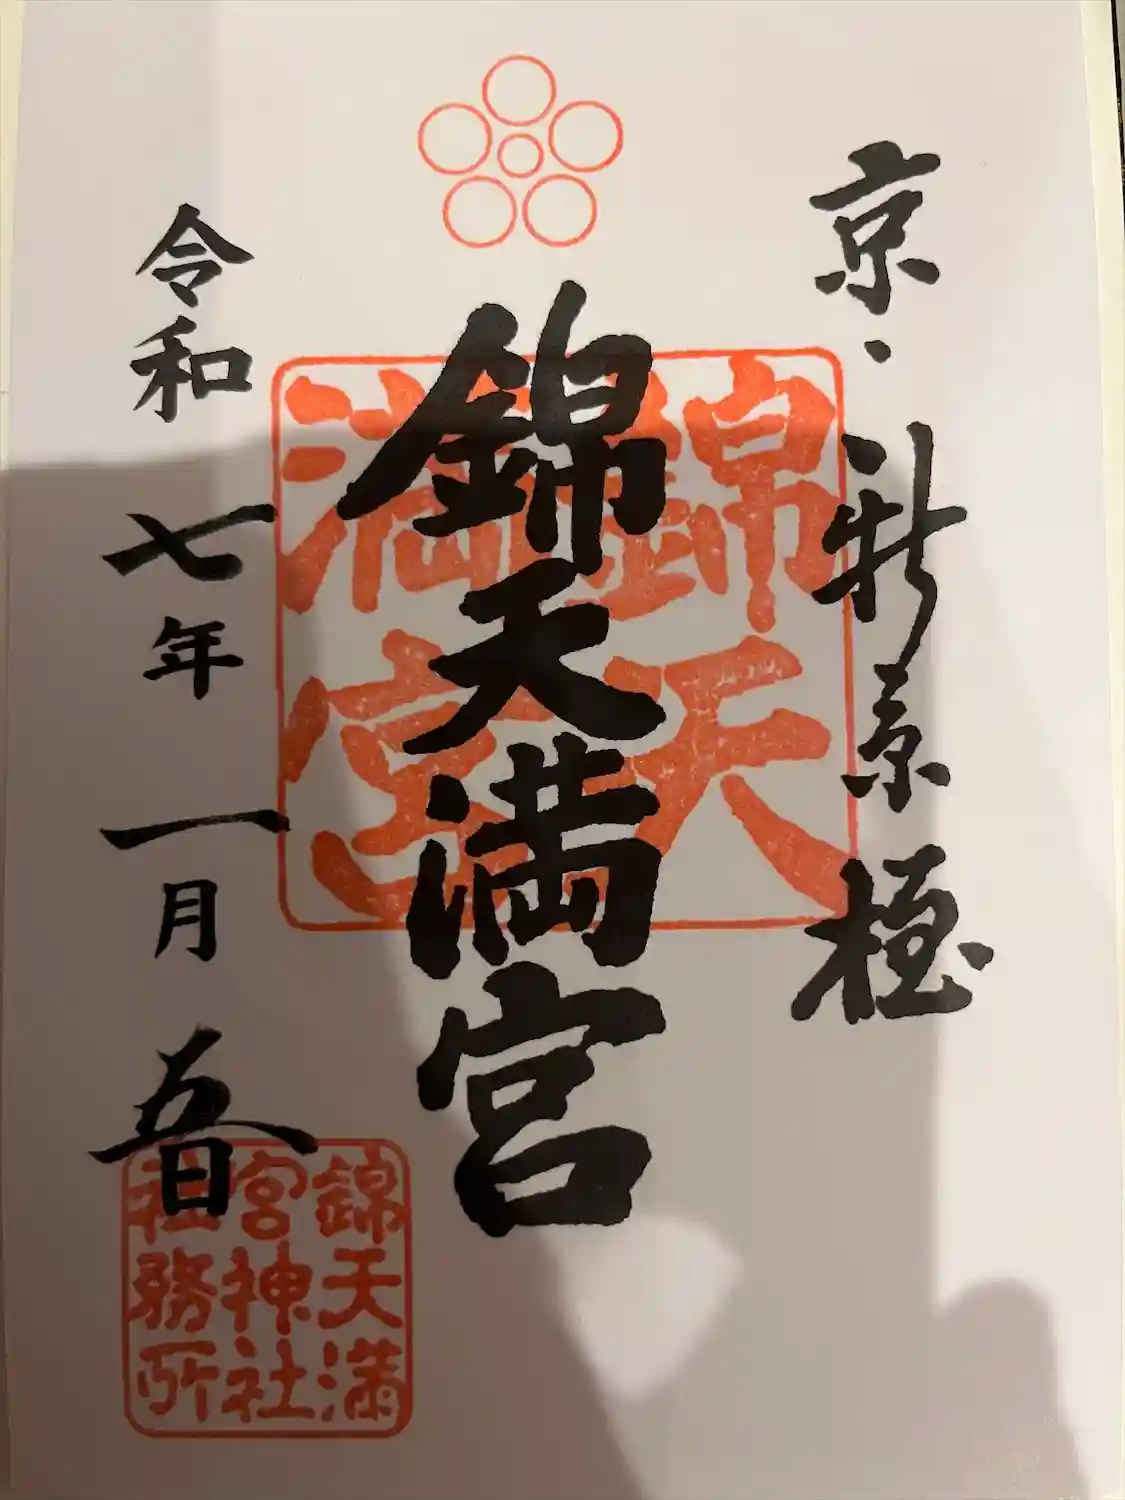 京・新京極
錦天満宮
令和七年一月五日
錦天
満宮
錦天満
宮神社
社務所